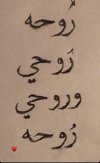 رُوحه
رُوحي
وروحي
رُوحه